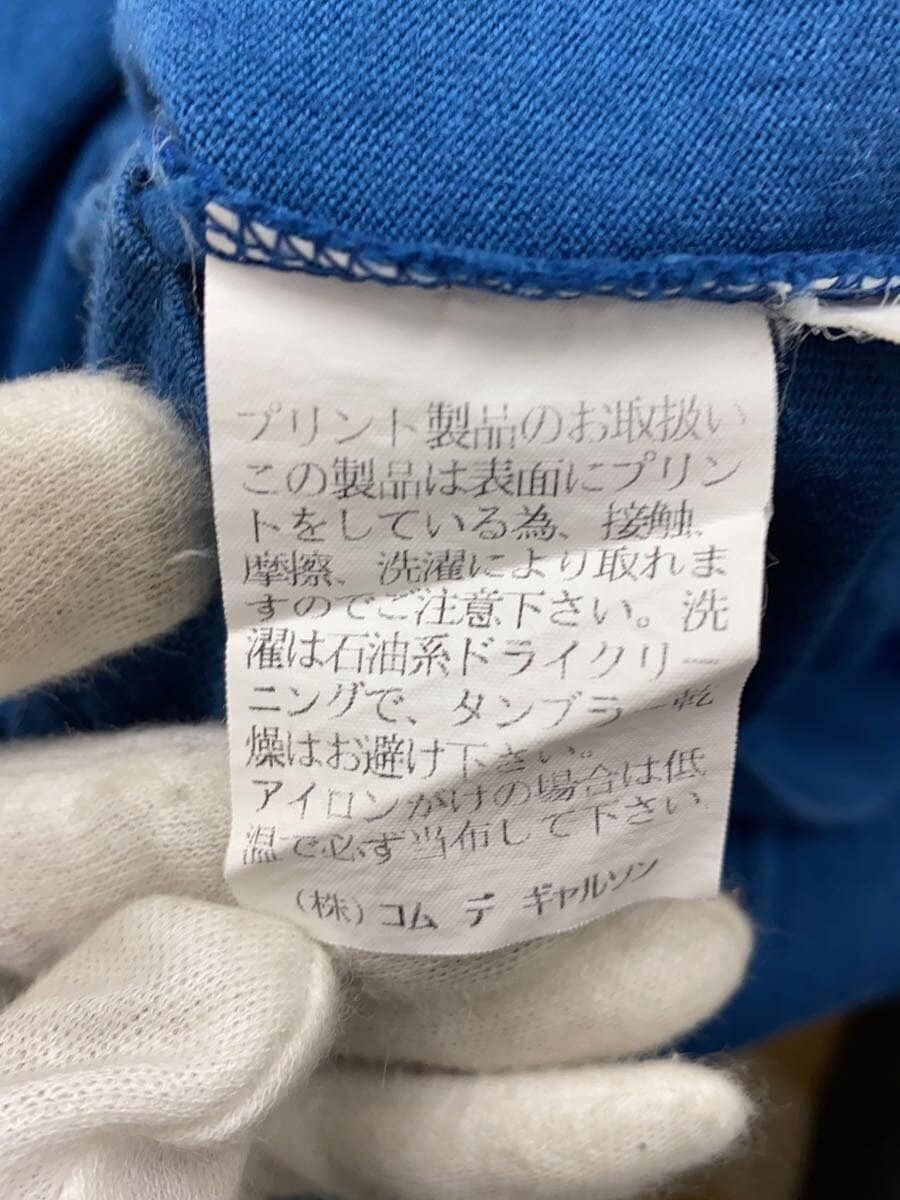 プリント製品のお取扱い
この製品は表面にプリン
トをしている為、接触、
摩擦、洗濯により取れま
すのでご注意下さい。洗
濯は石油系ドライクリー
ニングで、タンブラー乾
燥はお避け下さい。
アイロンがけの場合は低
温で必ず当布して下さい
(株)コム デ ギャルソン